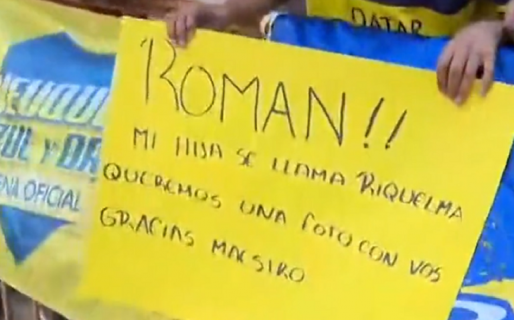 QATAR
ROMAN!!
MI HIJA SE LLAMA RIQUELMA
QUEREMOS UNA FOTO CON VOS
GRACIAS MAESTRO
NEUQU
ZUL Y OR
ENA OFICIAL